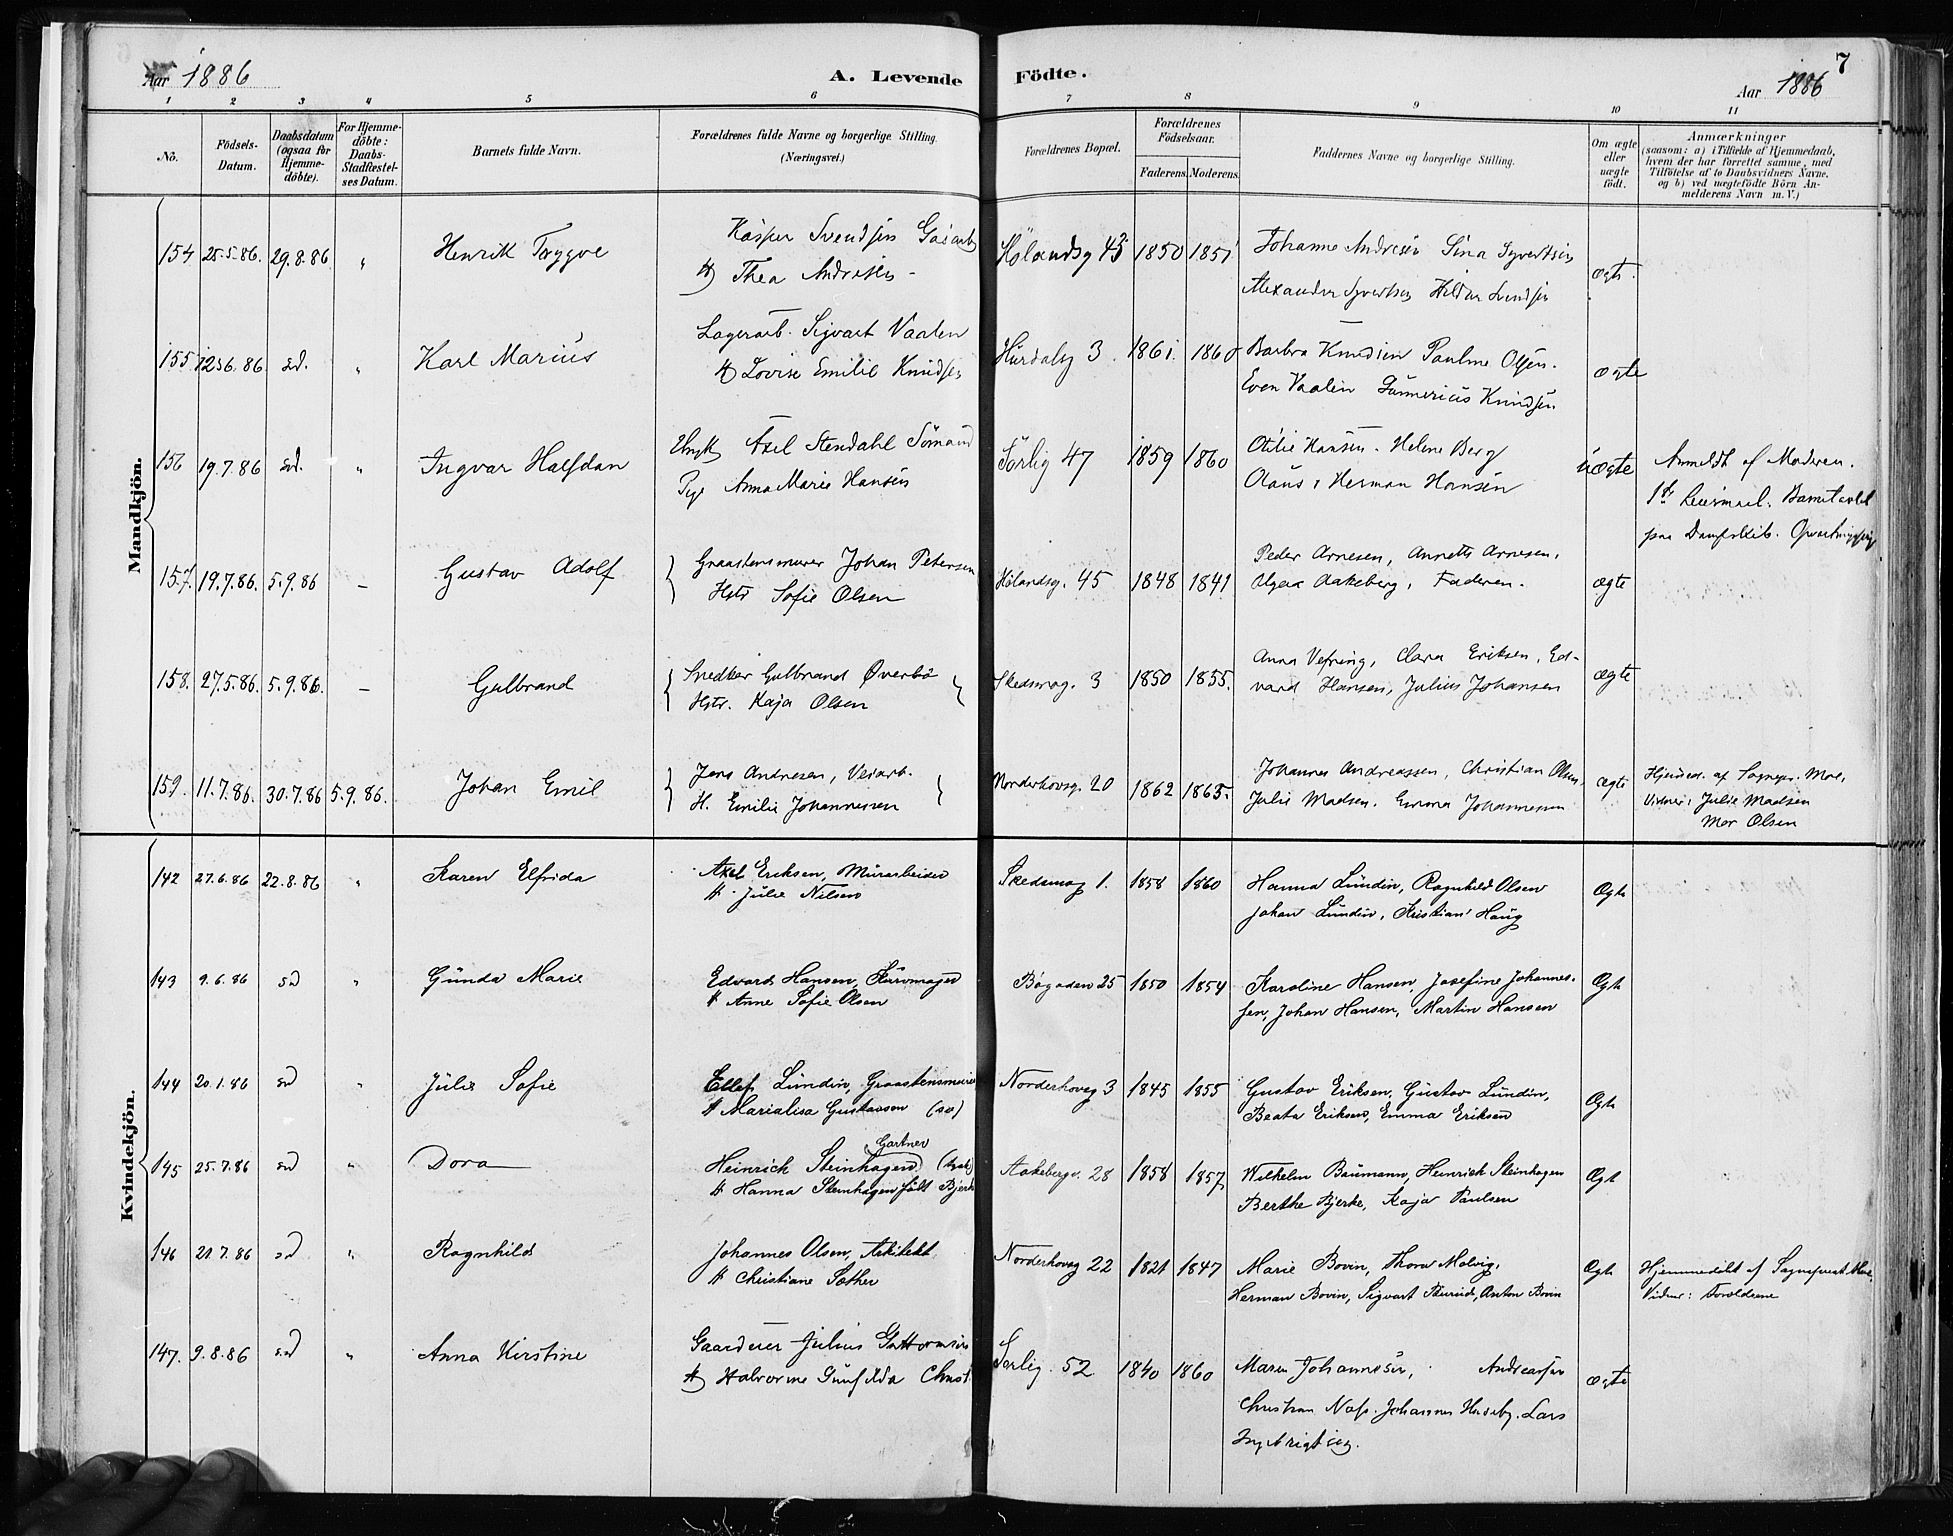 Aar 1886 A. Levende Födte. Aar 1886 7
1 2 3 4 5 6 7 8 9 10 11
No.
Födsels-Datum.
Daabsdatum (ogsaa for Hjemme-döbte).
For Hjemme-döbte: Daabs-Stadfæstel-ses Datum.
Barnets fulde Navn.
Forældrenes fulde Navne og borgerlige Stilling. (Næringsvei.)
Forældrenes Bopæl.
Forældrenes Födselsaar. Faderens. Moderens.
Faddernes Navne og borgerlige Stilling.
Om ægte eller uægte födt.
Anmærkninger
(saasom: a) i Tilfælde af Hjemmedaab,
hvem der har forrettet samme, med
Tilföielse af to Daabsvidners Navne.
og b) ved uægtefödte Börn An-
melderens Navn m. V.)
Mandkjön.
154 25.5.86. 29.8.86 " Henrik Trygve Kasper Svendsen Gasarb Hölandsg 43 1850 1851 Johanne Andresen Lina Syvertsen ægte.
Thea Andresen Alexander Syvertsen Hilda Svendsen
155 86. sd. " Karl Marius Lagerarb. Sigvart Vaalen Hurdalsg 3. 1861. 1860 Barbra Knudsen Pauline Olsen. ægte
Lovise Emilie Knudsen Even Vaalen Gunnerius Knudsen
156 19.7.86 sd. " Ingvar Halfdan Ungk Axel Stendahl Sömand Sörlig 47 1859 1860 Otilie Hansen. Helene Berg uægte Anmeldt af Moderen.
Pige Anna Marie Hansen Olaus, Herman Hansen 1ste Leiermaal. Barnet avlet
paa
157. 19.7.86. 5.9.86 — Gustav Adolf Graastensmurer Johan Petersen Hölandsg. 45 1848 1841 Peder Arnesen, Annette Arnesen, ægte
Hstr Sofie Olsen Aakeberg, Faderen.
158. 27.5.86. 5.9.86. — Gulbrand Snedker Gulbrand Øverbö Skedsmog. 3 1850 1855. Anna Vefring, Clara Eriksen, Ed- ægte
Hstr. Kaja Olsen vard Hansen, Julius Johansen
159. 11.7.86. 30.7.86 5.9.86. Johan Emil Jens Andresen, Veiarb. Norderhovsg. 20 1862 1865. Johannes Andreassen, Christian Olsen, ægte Hjemmed. af Sognepr. Moe,
H. Emilie Johannessen Julie Madsen. Emma Johannessen Vidner: Julie Madsen
Mor Olsen
Kvindekjön.
142 27.6.86 22.8.86 " Karen Elfrida Axel Eriksen, Murarbeider Skedsmog 1. 1858 1860 Hanna Lundin, Ragnhild Olsen Ægte
H. Julie Nilsen Johan Lundin, Kristian Haug
143 9.6.86 sd " Gunda Marie Edvard Hansen, Kurvmager Bögaden 25 1850 1854 Karoline Hansen, Josefine Johannes- Ægte
H Anne Sofie Olsen sen, Johan Hansen, Martin Hansen
144 20.1.86 sd " Julie Sofie Ellef Lundin, Graastensmurer Norderhovsg 3 1845 1855 Gustav Eriksen, Gustav Lundin, Ægte
H Marialisa Gustavson (sv) Beata Eriksen, Emma Eriksen
145 25.7.86 sd " Dora Heinrich Steinhagen Gartner (tysk) Aakebergv. 28 1858 1857 Wilhelm Baumann, Heinrich Steinhagen Ægt
H Hanna Steinhagen födt Bjerke Berthe Bjerke, Kaja Paulsen
146 21.7.86 sd " Ragnhild Johannes Olsen, Arkitekt Norderhovsg 22 1821 1847 Marie Bovin, Thora Melvig, Ægte Hjemmedöbt af Sognepræst Moe
H Christiane Sæther Herman Bovin, Sigvart , Anton Bovin Vidner: Forældrene
147. 9.8.86 sd " Anna Kirstine Gaardeier Julius Guttormsen Sörlig. 52 1840 1860 Maren Johannesen, Andreassen ægte
Halvorine Gunhilda Christ. Christian Næss. Johannes Huseby. Lars
Ingebrigtsen.